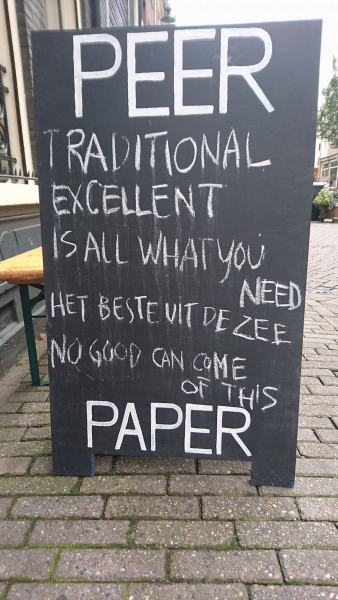 PEER
TRADITIONAL
EXCELLENT
IS ALL WHAT YOU
NEED
HET BESTE UIT DE ZEE
NO GOOD CAN COME
OF THIS
PAPER